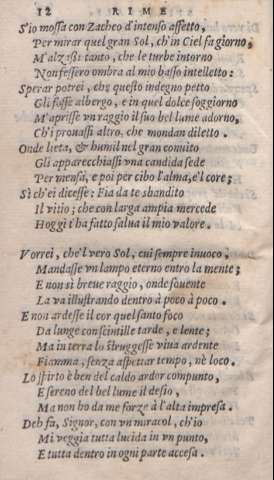 12 RIME
S'io mossa con Zacheo d'intenso affetto,
Per mirar quel gran Sol, ch'in Ciel fa giorno,
M'alzassi tanto, che le turbe intorno
Non fessero ombra al mio basso intelletto:
Sperar potrei, che questo indegno petto
Gli fosse albergo, e in quel dolce soggiorno
M'aprisse vn raggio il suo bel lume adorno,
Ch'i prouassi altro, che mondan diletto.
Onde lieta, & humil nel gran conuito
Gli apparecchiassi vna candida sede
Per mensa, e poi per cibo l'alma, e'l core;
Sì ch'ei dicesse: Fia da te sbandito
Il vitio; che con larga ampia mercede
Hoggi t'ha fatto salua il mio valore.
Vorrei, che'l vero Sol, cui sempre inuoco,
Mandasse vn lampo eterno entro la mente;
E non sì breue raggio, onde souente
La va illustrando dentro à poco à poco.
E non ardesse il cor quel santo foco
Da lunge con scintille tarde, e lente;
Ma in terra lo struggesse viua ardente
Fiamma, senza aspettar tempo, nè loco.
Lo spirto è ben del caldo ardor compunto,
E sereno del bel lume il desio,
Ma non ho da me forze à l'alta impresa.
Deh fa, Signor, con vn miracol, ch'io
Mi veggia tutta lucida in vn punto,
E tutta dentro in ogni parte accesa.